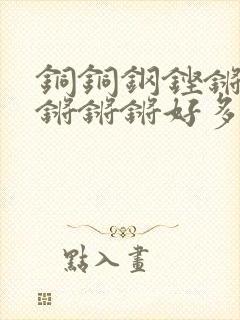 銅銅鋼鏗鏘
鏘鏘鏘好多
點入畫